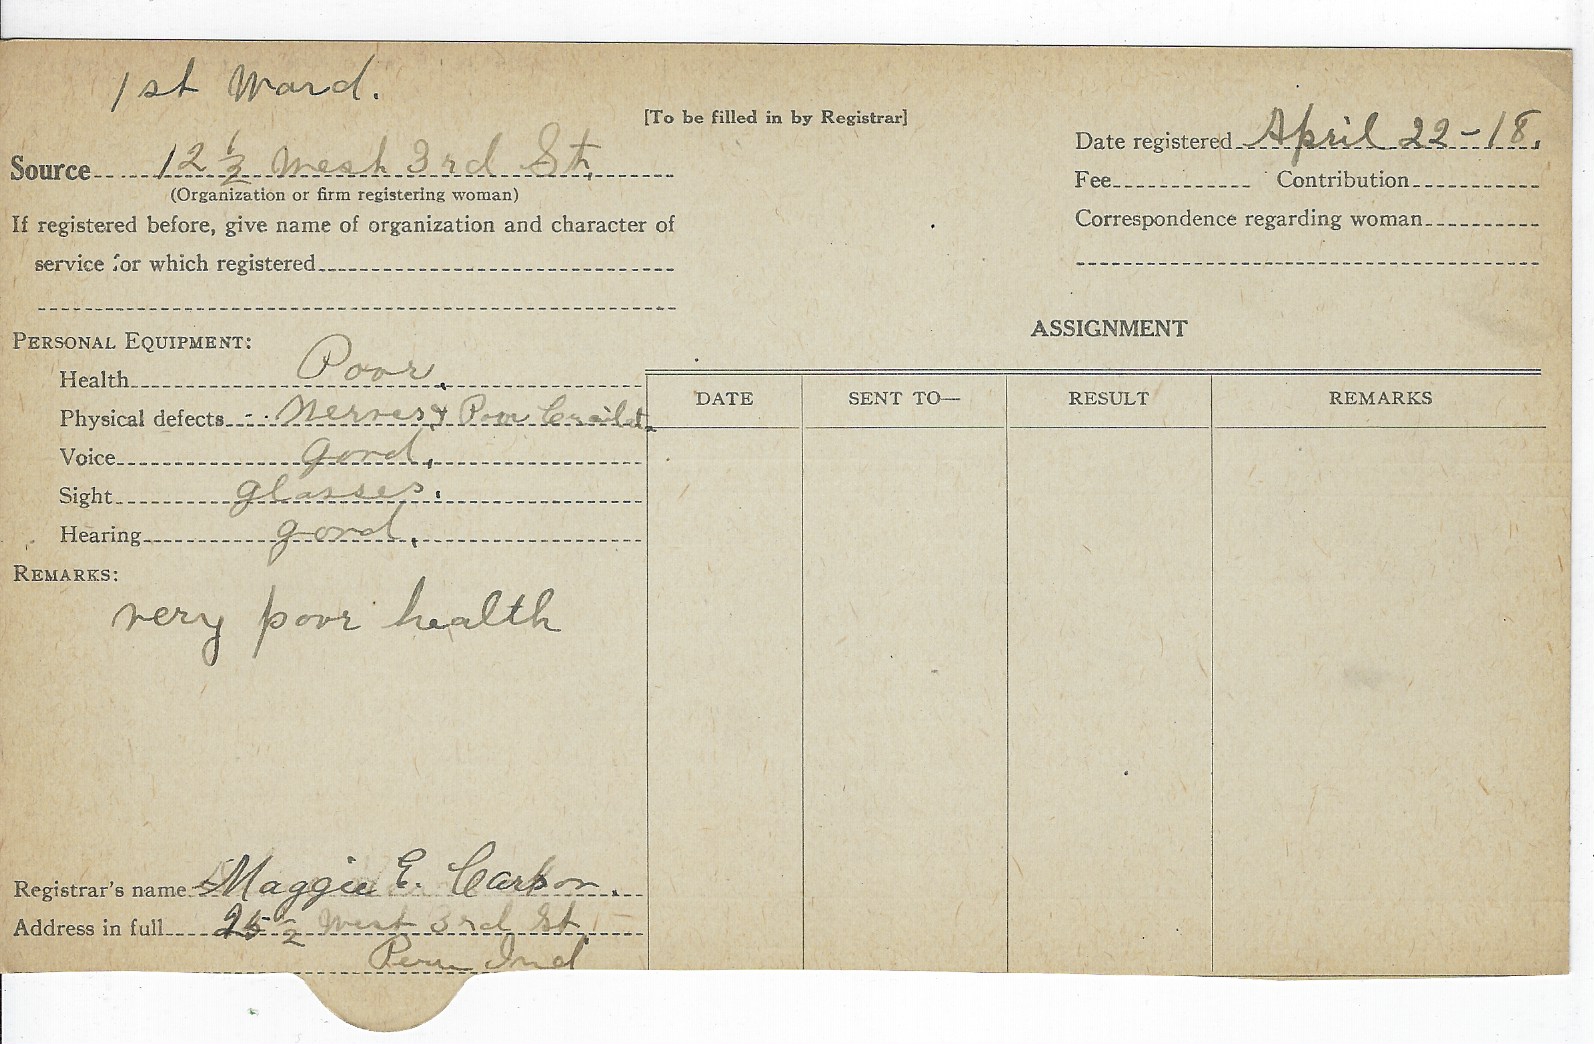 1st Ward.
[To be filled in by Registrar]
Date registered April 22-18.
Source 12 1/2 West 3rd St.
(Organization or firm registering woman)
Fee Contribution
If registered before, give name of organization and character of
service for which registered
Correspondence regarding woman
PERSONAL EQUIPMENT:
ASSIGNMENT
Health Poor.
DATE SENT TO— RESULT REMARKS
Physical defects Nerves & Poor
Voice good.
Sight glasses.
Hearing good.
REMARKS:
very poor health
Registrar's name Maggie E.
Address in full 1/2 West 3rd St
Peru Ind